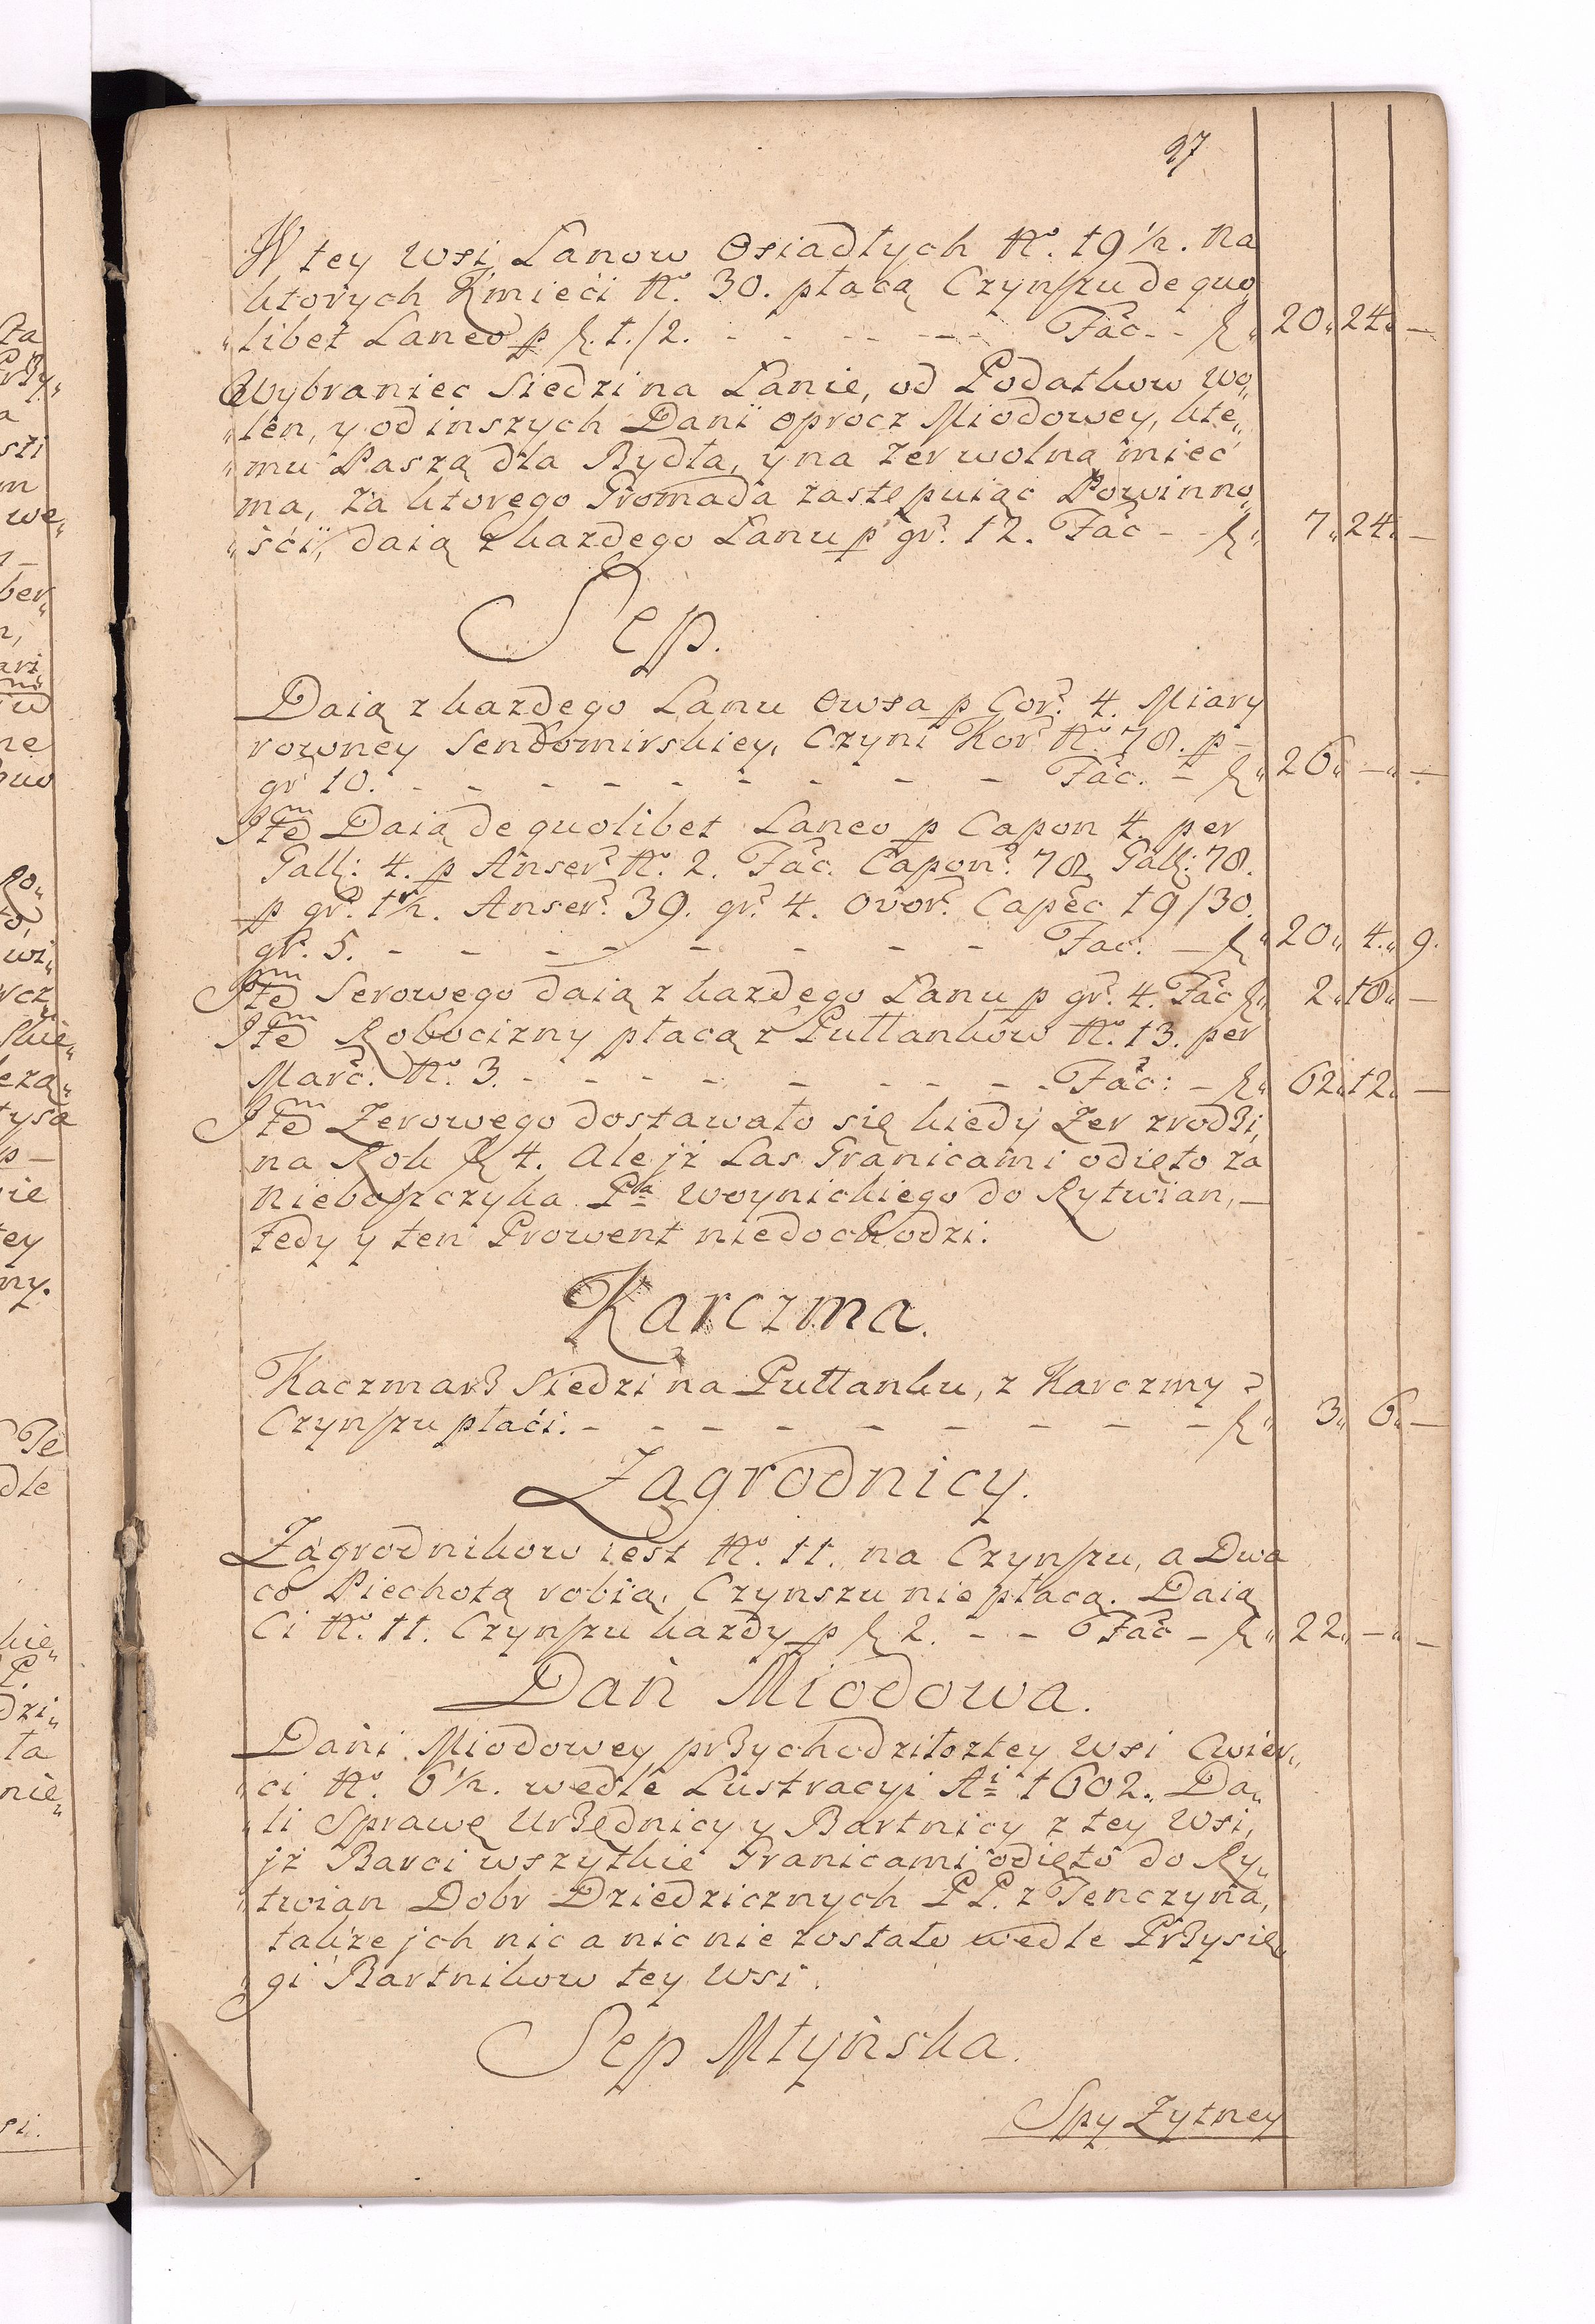 97
W tey wsi Łanow Osiadłych No. 19 1/2. Na
ktorych Kmieći No. 30. płacą Czynszu de quo„
„libet Laneo p f. 1./2. - - - - - Fac. - f„ 20„ 24„ —
Wybraniec siedzi na Łanie, od Podatkow wo„
„len, y od inszych Dani oprocz Miodowey, kte„
„mu Paszą dla Bydła, y na Zer wolną mieć
ma, Za ktorego Gromada zastępuiąc Powinno„
„sći, daią z kazdego Łanu p gr. 12. Fac - - f„ 7„ 24„ —
Sep.
Daią z kazdego Łanu Owsa p Cor. 4. Miary
rowney Sendomirskiey, Czyni Kor No. 78. p -
gr 10. - - - - - - - - - - Fac. - f„ 26„ —„ —
Itē Daią de quolibet Laneo p Capon 4. per
Gall: 4. p Anser. No. 2. Fac. Capon. 78. Gall: 78.
p gr. 1 1/2. Anser. 39. gr. 4. Ovor. Capec 19/30.
gr. 5. - - - - - - - - - Fac. - f„ 20„ 4„ 9.
Itē Serowego daią z kazdego Łanu p gr. 4. Fac f„ 2„ 18„ —
Itē Robocizny płacą z Pułłankow No. 13. per
Marc. No. 3. - - - - - - - - - Fac: - f„ 62„ 12„ —
Itē Zerowego dostawało się kiedy Zer zrodzi,
na Rok f 4. Ale jz Las Granicami odięto za
Nieboszczyka Pna Woynickiego do Rytwian, —
Tedy y ten Prowent niedochodzi.
Karczma.
Kaczmarz siedzi na Pułłanku, z Karczmy
Czynszu płaći. - - - - - - - - - - f„ 3„ 6„ —
Zagrodnicy.
Zagrodnikow iest No. 11. na Czynszu, a Dwa
co Piechotą robią, Czynszu nie płacą. Daią
Ci No. 11. Czynszu kazdy p f 2. - - Fac - f„ 22„ —„ —
Dań Miodowa.
Dańi Miodowey przychodziło z tey wsi Cwier„
„ci No. 6 1/2. wedle Lustracyi Ai 1602. Da„
„li Sprawę Urzędnicy y Bartnicy z tey Wsi,
jz Barci wszytkie Granicami odięto do Ry„
„twian Dobr Dziedzicznych PP. z Tenczyna,
takze jch nic a nic nie zostało wedle Przysię„
„gi Bartnikow tey wsi.
Sep Młyńska.
Spy Zytney